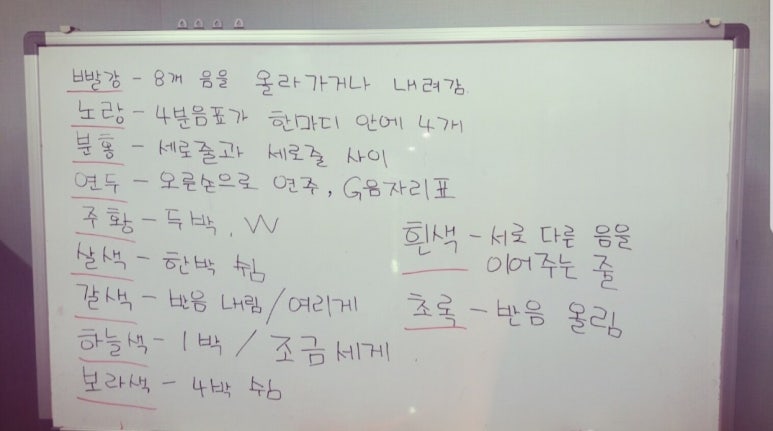 빨강 - 8개 음을 올라가거나 내려감.
노랑 - 4분음표가 한마디 안에 4개
분홍 - 세로줄과 세로줄 사이
연두 - 오른손으로 연주, G음자리표
주황 - 두박, W
살색 - 한박 쉼
갈색 - 반음 내림/여리게
하늘색 - 1박 / 조금세게.
보라색 - 4박 쉼
흰색 - 서로 다른 음을
이어주는 줄
초록 - 반음 올림